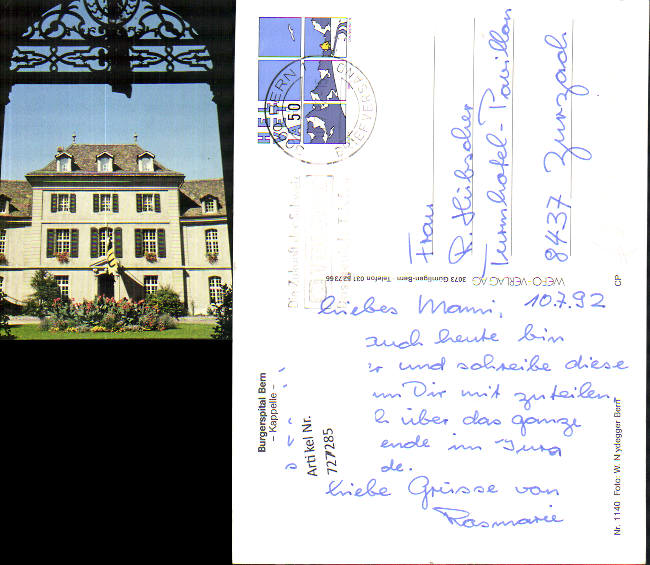 Liebes Mami, 10.7.92
auch heute bin
r und schreibe diese
um Dir mit zuteilen,
h über das ganze
ende im Jura
de.
Liebe Grüsse von
Rosmarie
Frau
R. Hübscher
Turmhotel-Pavillon
8437 Zurzach
HELVETIA 50
BERN
BRIEFVERSAND
WEFO-VERLAG AG 3073 Gümligen-Bern Telefon 031
CP
Burgerspital Bern
– Kappelle –
Artikel Nr.
727285
Nr. 1140 Foto: W. Nydegger Bern